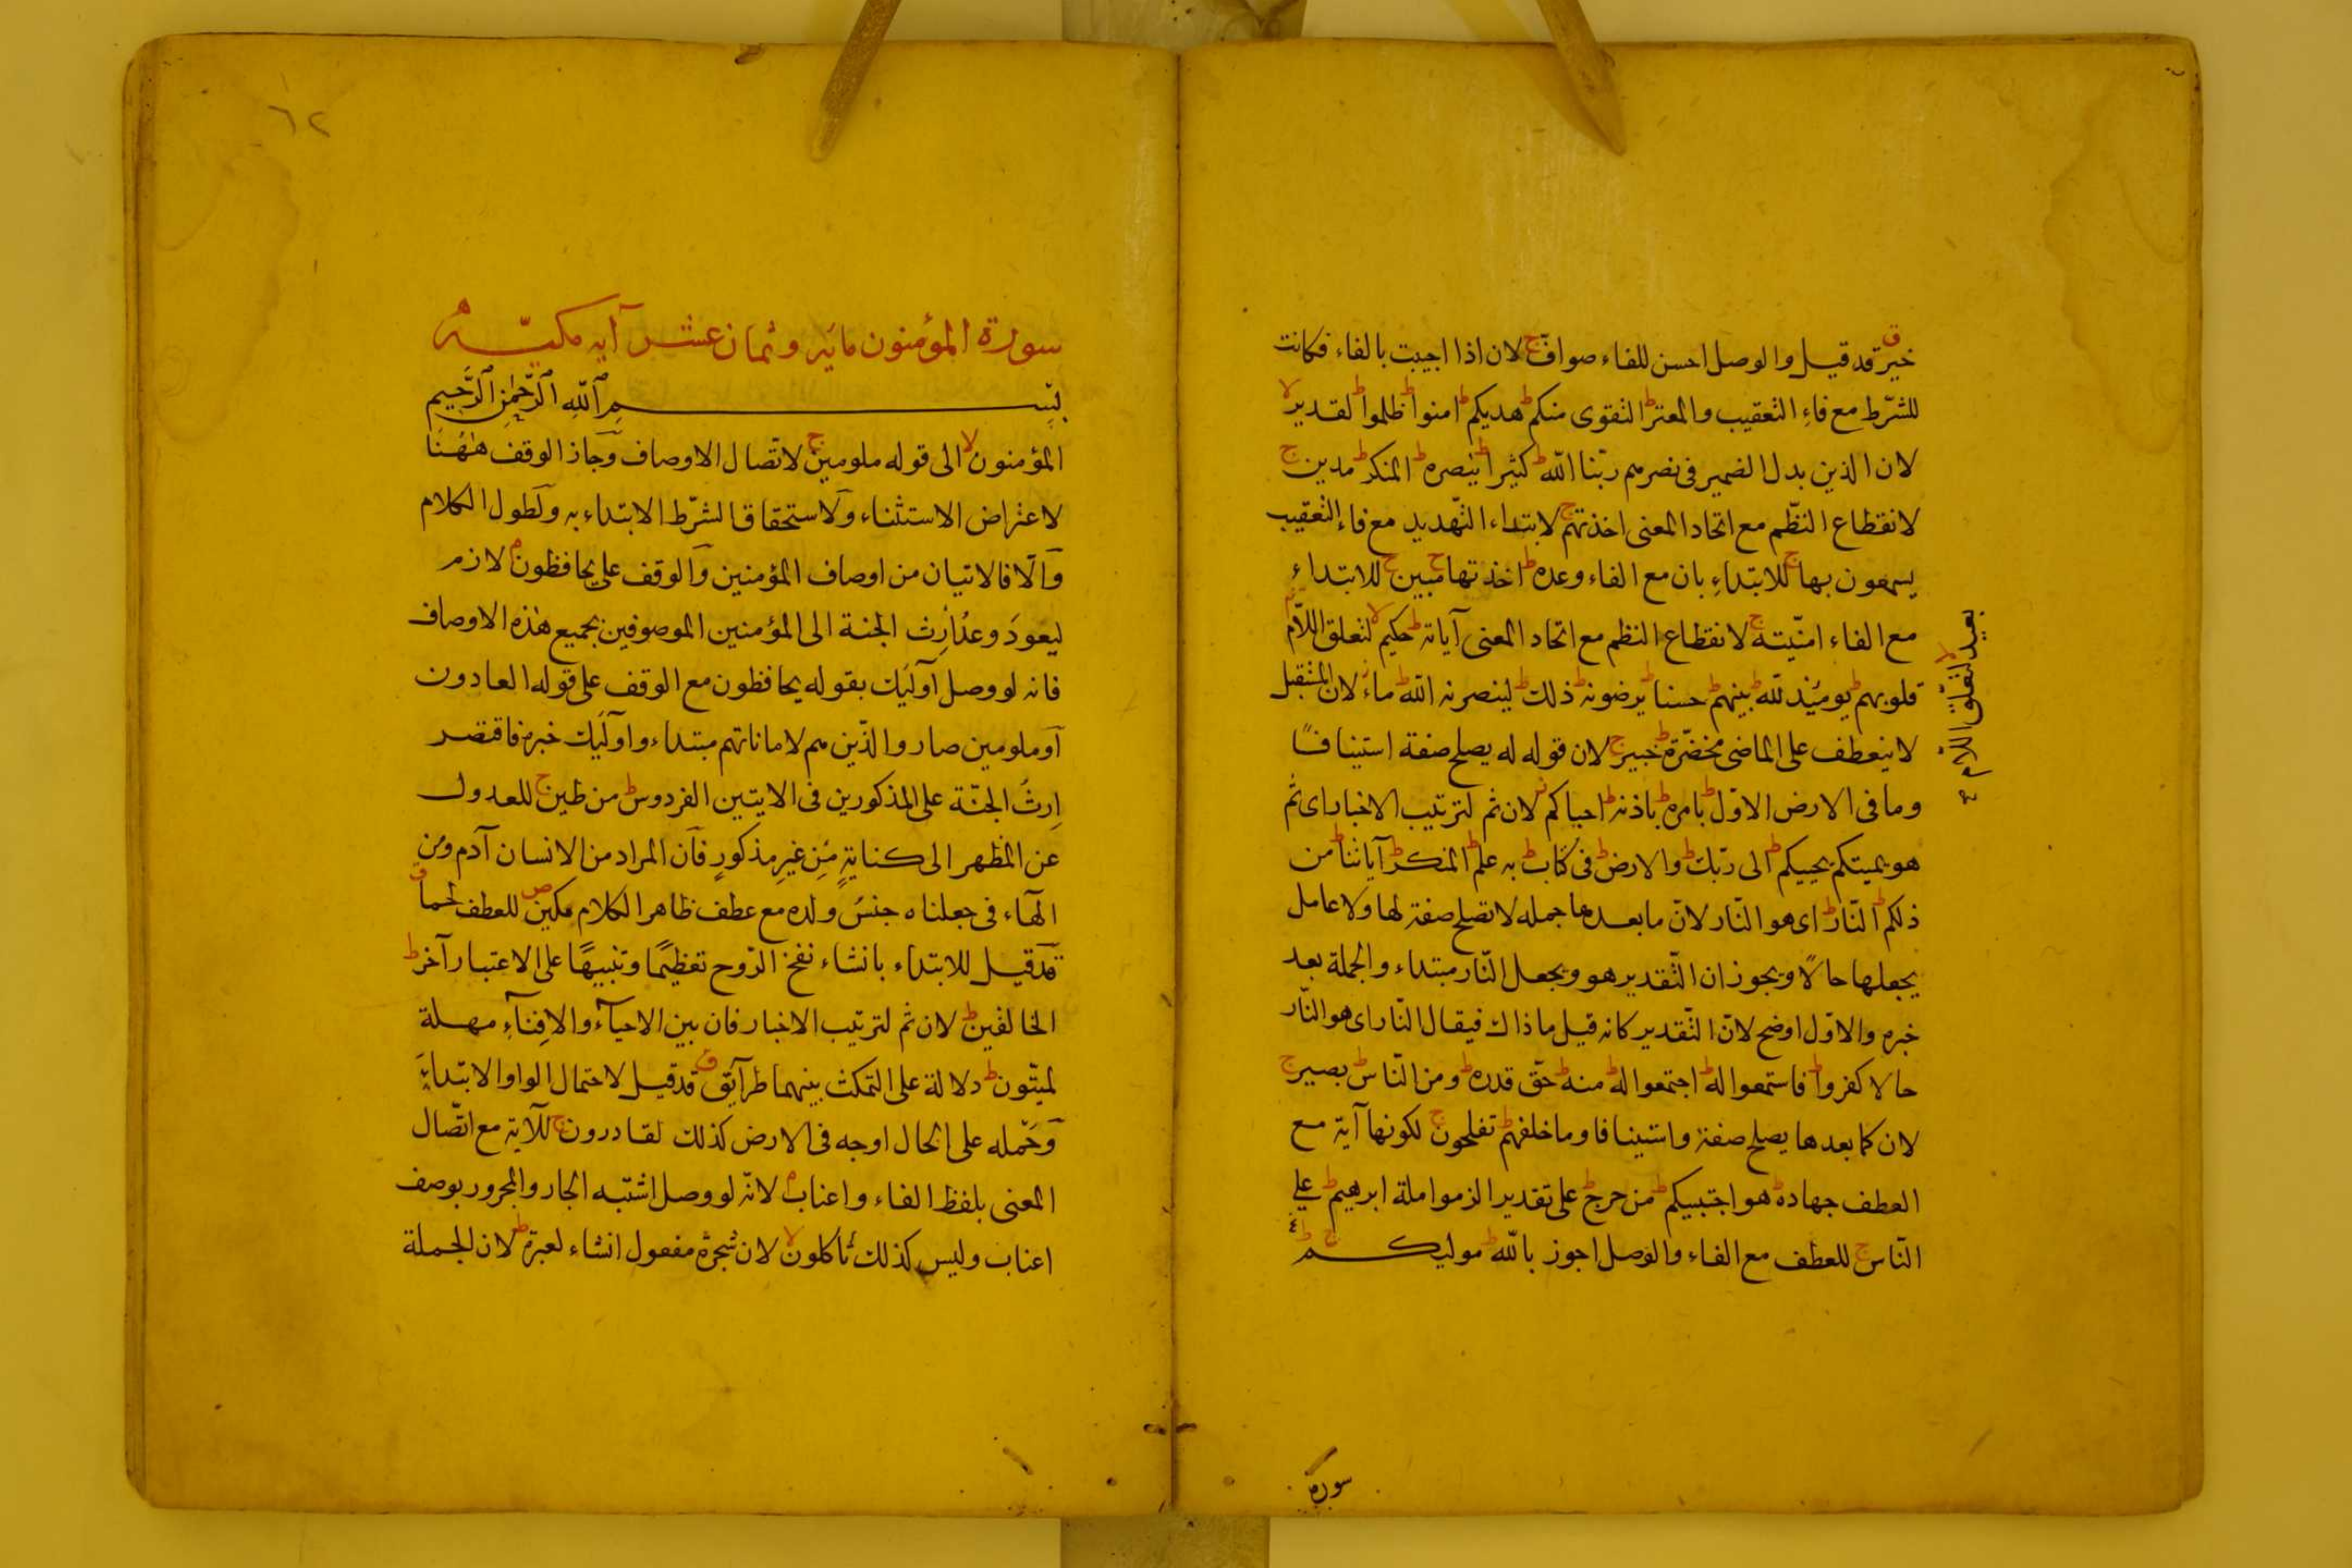 خير ق قد قيل والوصل احسن للفاء صوافّ ج لان اذا اجيبت بالفاء فكانت
للشّرط مع فاءِ التعقيب والمعترّ ط التقوى منكم ط هديكم ط امنوا ط ظلموا ط لقدير لا
لان الذين بدل الضمير فى نصرهم ربّنا اللّه ط كثيرا ط ينصره ط المنكر ط مدين ج
لانقطاع النظّم مع اتحاد المعنى اخذتهم ج لابتداء التّهديد مع فاءِ التعقيب
يسمعون بها ج للابتداءِ بان مع الفاء وعده ط اخذتها ج مبين ج للابتداءِ
مع الفاء امنّيته ج لانقطاع النظم مع اتحاد المعنى آياته ط حكيم لا لتعلق اللّام
قلوبهم ط بعيد لا لتعلّق اللّام صح
يومئذ للّه ط بينهم ط حسنا ط يرضونه ط ذلك ط لينصرنه اللّه ط ماء ز لان المستقبل
لا ينعطف على الماضى مخضرّة ط خبير ج لان قوله له يصلح صفة استينافًا
وما فى الارض الاوّل ط بامره ط باذنه ط احياكم ز لان ثم لترتيب الاخبار اى ثم
هو يميتكم يحييكم ط الى ربّك ط والارض ط فى كتاب ط به علم ط المنكر ط آياتنا ط من
ذلكم ط النّار ط اى هو النّار لانّ ما بعدها جمله لا تصلح صفة لها ولا عامل
يجعلها حالًا ويجوز ان التّقدير هو ويجعل النّار مبتداء والجملة بعد
خبره والاوّل اوضح لانّ التّقدير كانه قيل ما ذاك فيقال النّار اى هو النّار
حالا كفروا ط فاستمعوا له ط اجتمعوا له ط منه ط حقّ قدره ط ومن النّاس ط بصير ج
لان كما بعدها يصلح صفة واستينافا وما خلفهم ط تفلحون ج لكونها آية مع
العطف جهاده ط هو اجتبيكم ط من حرج ط على تقدير الزموا ملة ابرهيم ط على
النّاس ج للعطف مع الفاء والوصل اجوز باللّه ط موليكم ج
سورة
٦٢
سورة المؤمنون مايه وثمان عشر آيه مكيّة
بسم اللّه الرّحمن الرّحيم
المؤمنون لا الى قوله ملومين ج لاتّصال الاوصاف وجاز الوقف ههُنا
لاعتراض الاستثناء ولاستحقاق الشّرط الابتداء به ولطول الكلام
والّا فالاتيان من اوصاف المؤمنين والوقف على يحافظون م لازم
ليعودَ وعدُ ارِث الجنة الى المؤمنين الموصوفين بجميع هذه الاوصاف
فانه لو وصل اولئِك بقوله يحافظون مع الوقف على قوله العادون
او ملومين صار والذّين هم لاماناتهم مبتداء واولئِك خبره فاقتصر
اِرثُ الجنّة على المذكورين فى الايتين الفردوس ط من طين ج للعدول
عن المظهر الى كنايةٍ مِن غيرِ مذكورٍ فان المراد من الانسان آدم ومن
الهاء فى جعلناه جنسُ ولده مع عطف ظاهر الكلام مكين ص للعطف لحما ق
قد قيل للابتداء بانشاء نفخ الرّوح تعظيمًا وتنبيهًا على الاعتبار آخر ط
الخالقين ط لان ثم لترتيب الاخبار فان بين الاحياء والافِناءِ مهلة
لميتّون ط دلالة على التمكث بينهما طرآيق ق قد قيل لاحتمال الواو الابتداء
وحَمْله على الحال اوجه فى الارض كذلك لقادرون ج للآية مع اتّصال
المعنى بلفظ الفاء واعناب م لانّه لو وصل اشتبه الجار والمجرور بوصف
اعناب وليس كذلك تأكلون لا لان شجرة مفعول انشاء لعبرة ط لان الجملة